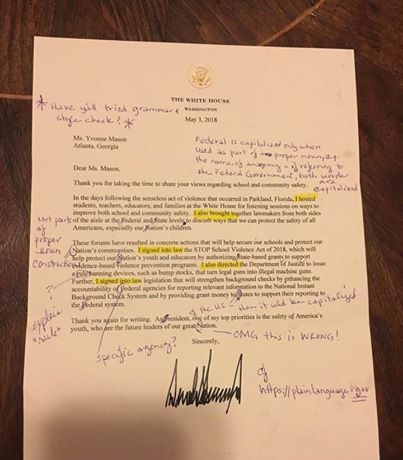 THE WHITE HOUSE
WASHINGTON
May 3, 2018
* Have y'all tried grammar &
style check? *
Ms. Yvonne Mason
Atlanta, Georgia
Federal is capitalized only when
used as part of a proper noun, e.g.
the name of an agency - if referring to
the Federal Government, both words
are
capitalized
Dear Ms. Mason,
Thank you for taking the time to share your views regarding school and community safety.
In the days following the senseless act of violence that occurred in Parkland, Florida, I hosted
students, teachers, educators, and families at the White House for listening sessions on ways to
improve both school and community safety. I also brought together lawmakers from both sides
of the aisle at the Federal and State levels to discuss ways that we can protect the safety of all
Americans, especially our Nation's children.
Not part
of
proper
noun
construction
These forums have resulted in concrete actions that will help secure our schools and protect our
Nation's communities. I signed into law the STOP School Violence Act of 2018, which will
help protect our Nation's youth and educators by authorizing State-based grants to support
evidence-based violence prevention programs. I also directed the Department of Justice to issue
a rule banning devices, such as bump stocks, that turn legal guns into illegal machine guns.
Further, I signed into law legislation that will strengthen background checks by enhancing the
accountability of Federal agencies for reporting relevant information to the National Instant
Background Check System and by providing grant money to States to support their reporting to
the Federal system.
?
explain
"rule"
of the US - then it would be capitalized
Thank you again for writing. As President, one of my top priorities is the safety of America's
youth, who are the future leaders of our great Nation.
Sincerely,
OMG this is WRONG!
specific agency?
cf
https://plainlanguage.gov